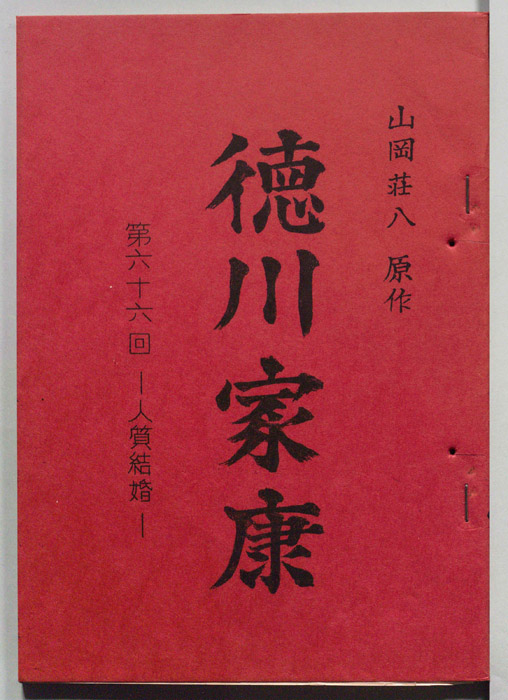 山岡荘八 原作
徳川家康
第六十六回 ー人質結婚ー